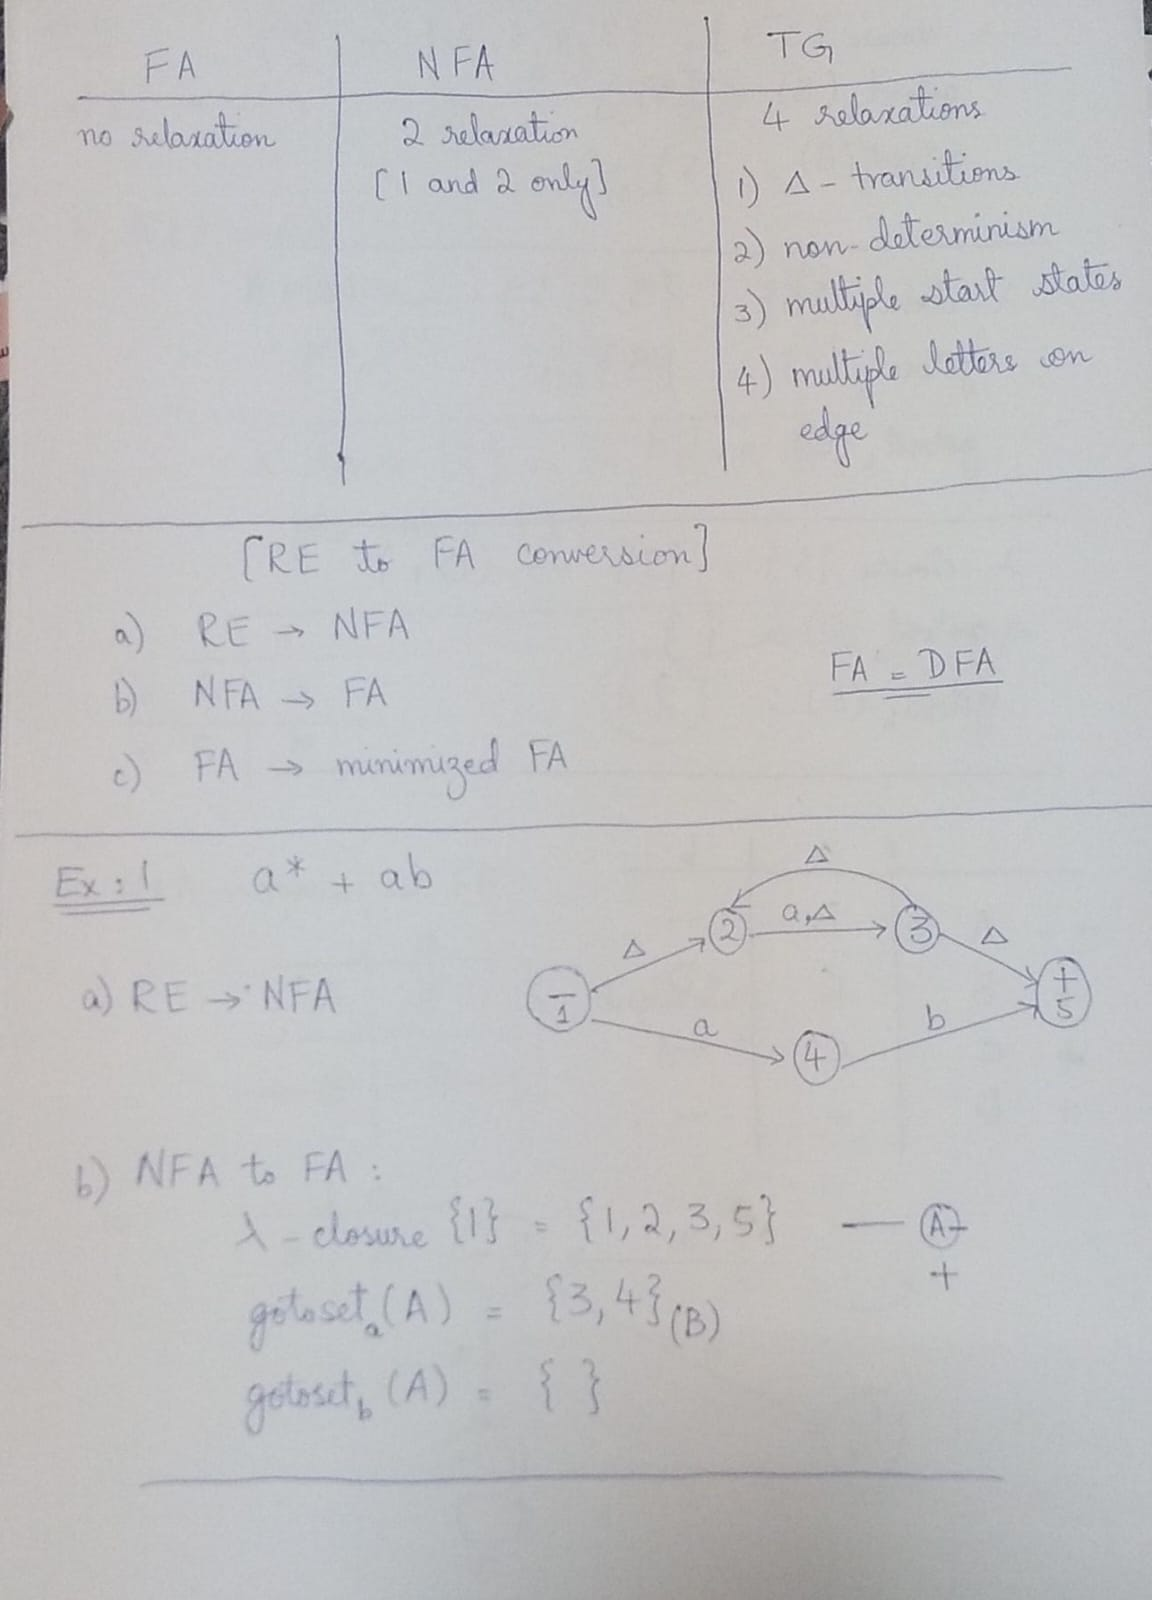 FA
NFA
TG
no relaxation
2 relaxation
[1 and 2 only]
4 relaxations
1) Δ - transitions
2) non-determinism
3) multiple start states
4) multiple letters on
edge
[RE to FA conversion]
a) RE → NFA
b) NFA → FA
c) FA → minimized FA
FA = DFA
Ex:1 a* + ab
a) RE → NFA
Δ
a,Δ
2
3
Δ
Δ
−
1
+
5
a
b
4
b) NFA to FA :
λ - closure {1} = {1, 2, 3, 5} — A-
+
gotoset a (A) = {3, 4} (B)
gotoset b (A) = { }